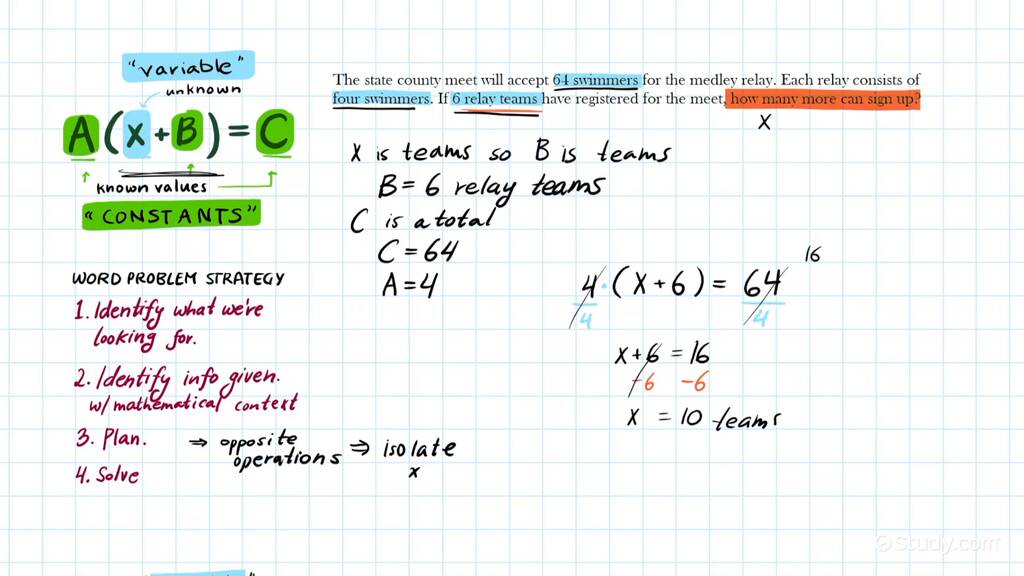 "variable"
unknown
A(x+B)=C
known values
"CONSTANTS"
WORD PROBLEM STRATEGY
1. Identify what we're
looking for.
2. Identify info given.
w/ mathematical context
3. Plan. ⇒ opposite operations ⇒ isolate x
4. Solve
The state county meet will accept 64 swimmers for the medley relay. Each relay consists of
four swimmers. If 6 relay teams have registered for the meet, how many more can sign up?
X
X is teams so B is teams
B = 6 relay teams
C is a total
C = 64
A = 4
16
4 · (x+6) = 64
4 4
x+6 = 16
-6 -6
x = 10 teams
©Study.com